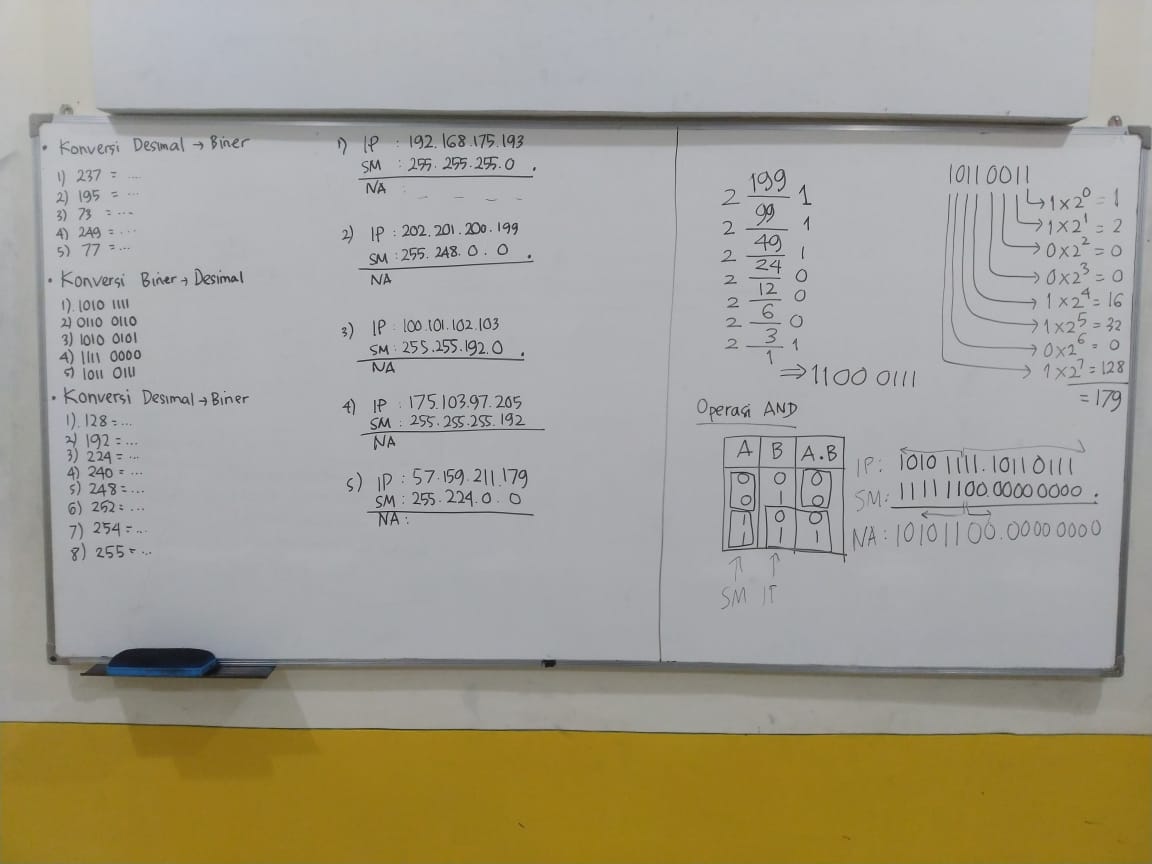 • Konversi Desimal → Biner
1) 237 = ...
2) 195 = ...
3) 73 = ...
4) 249 = ...
5) 77 = ...
• Konversi Biner → Desimal
1). 1010 1111
2) 0110 0110
3) 1010 0101
4) 1111 0000
5) 1011 0111
• Konversi Desimal → Biner
1). 128 = ...
2) 192 = ...
3) 224 = ...
4) 240 = ...
5) 248 = ...
6) 252 = ...
7) 254 = ...
8) 255 = ...
1) IP : 192.168.175.193
SM : 255.255.255.0 .
NA :
2) IP : 202.201.200.199
SM : 255.248.0.0 .
NA
3) IP : 100.101.102.103
SM : 255.255.192.0 .
NA
4) IP : 175.103.97.205
SM : 255.255.255.192
NA
5) IP : 57.159.211.179
SM : 255.224.0.0
NA :
199
2 1
99
2 1
49
2 1
24
2 0
12
2 0
6
2 0
3
2 1
1
⇒ 1100 0111
1011 0011
→ 1 x 2⁰ = 1
→ 1 x 2¹ = 2
→ 0 x 2² = 0
→ 0 x 2³ = 0
→ 1 x 2⁴ = 16
→ 1 x 2⁵ = 32
→ 0 x 2⁶ = 0
→ 1 x 2⁷ = 128
= 179
Operasi AND
A B A.B
0 0 0
0 1 0
1 0 0
1 1 1
SM IP
IP : 1010 1111.10110111
SM : 11111100.00000000 .
NA : 10101100.00000000